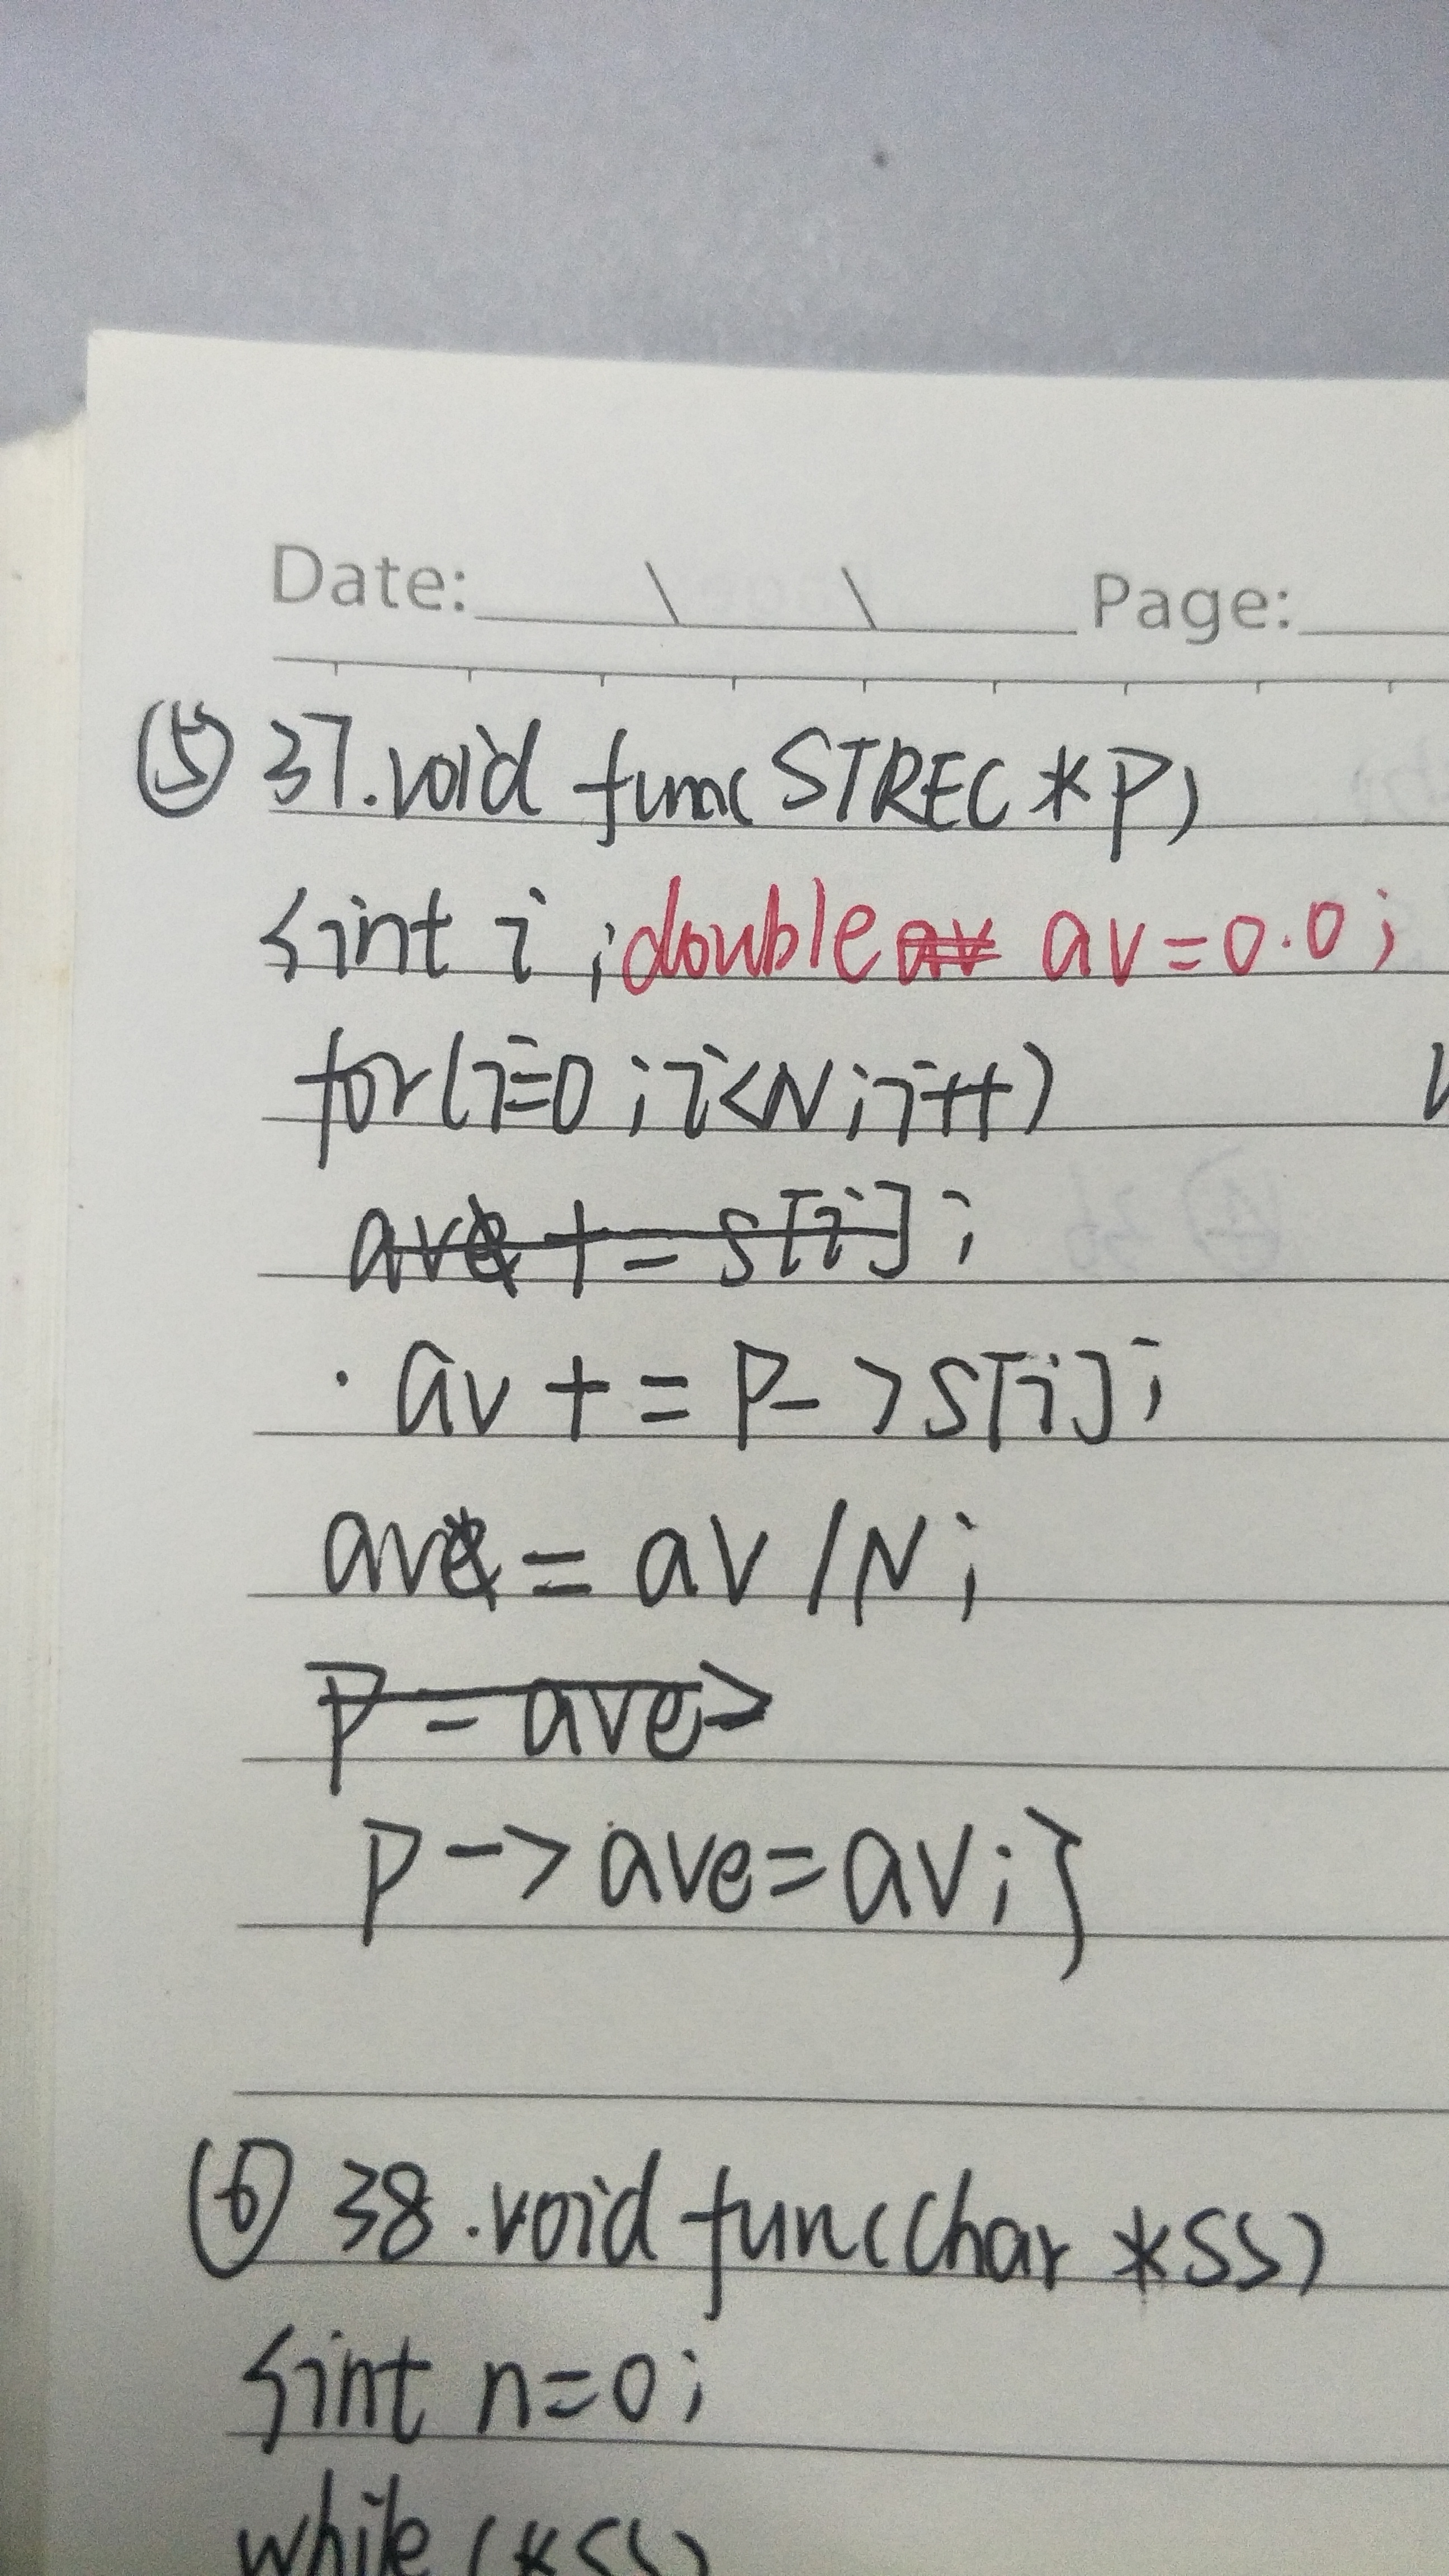 Date: \ \ Page:
⑤ 37. void func(STREC *p)
{int i ; double av av = 0.0 ;
for(i=0 ; i<N ; i++)
ave += s[i] ;
· av += p->s[i] ;
av = av / N ;
p = ave>
p -> ave = av ; }
⑥ 38. void func(char *ss)
{int n=0 ;
while (*ss)